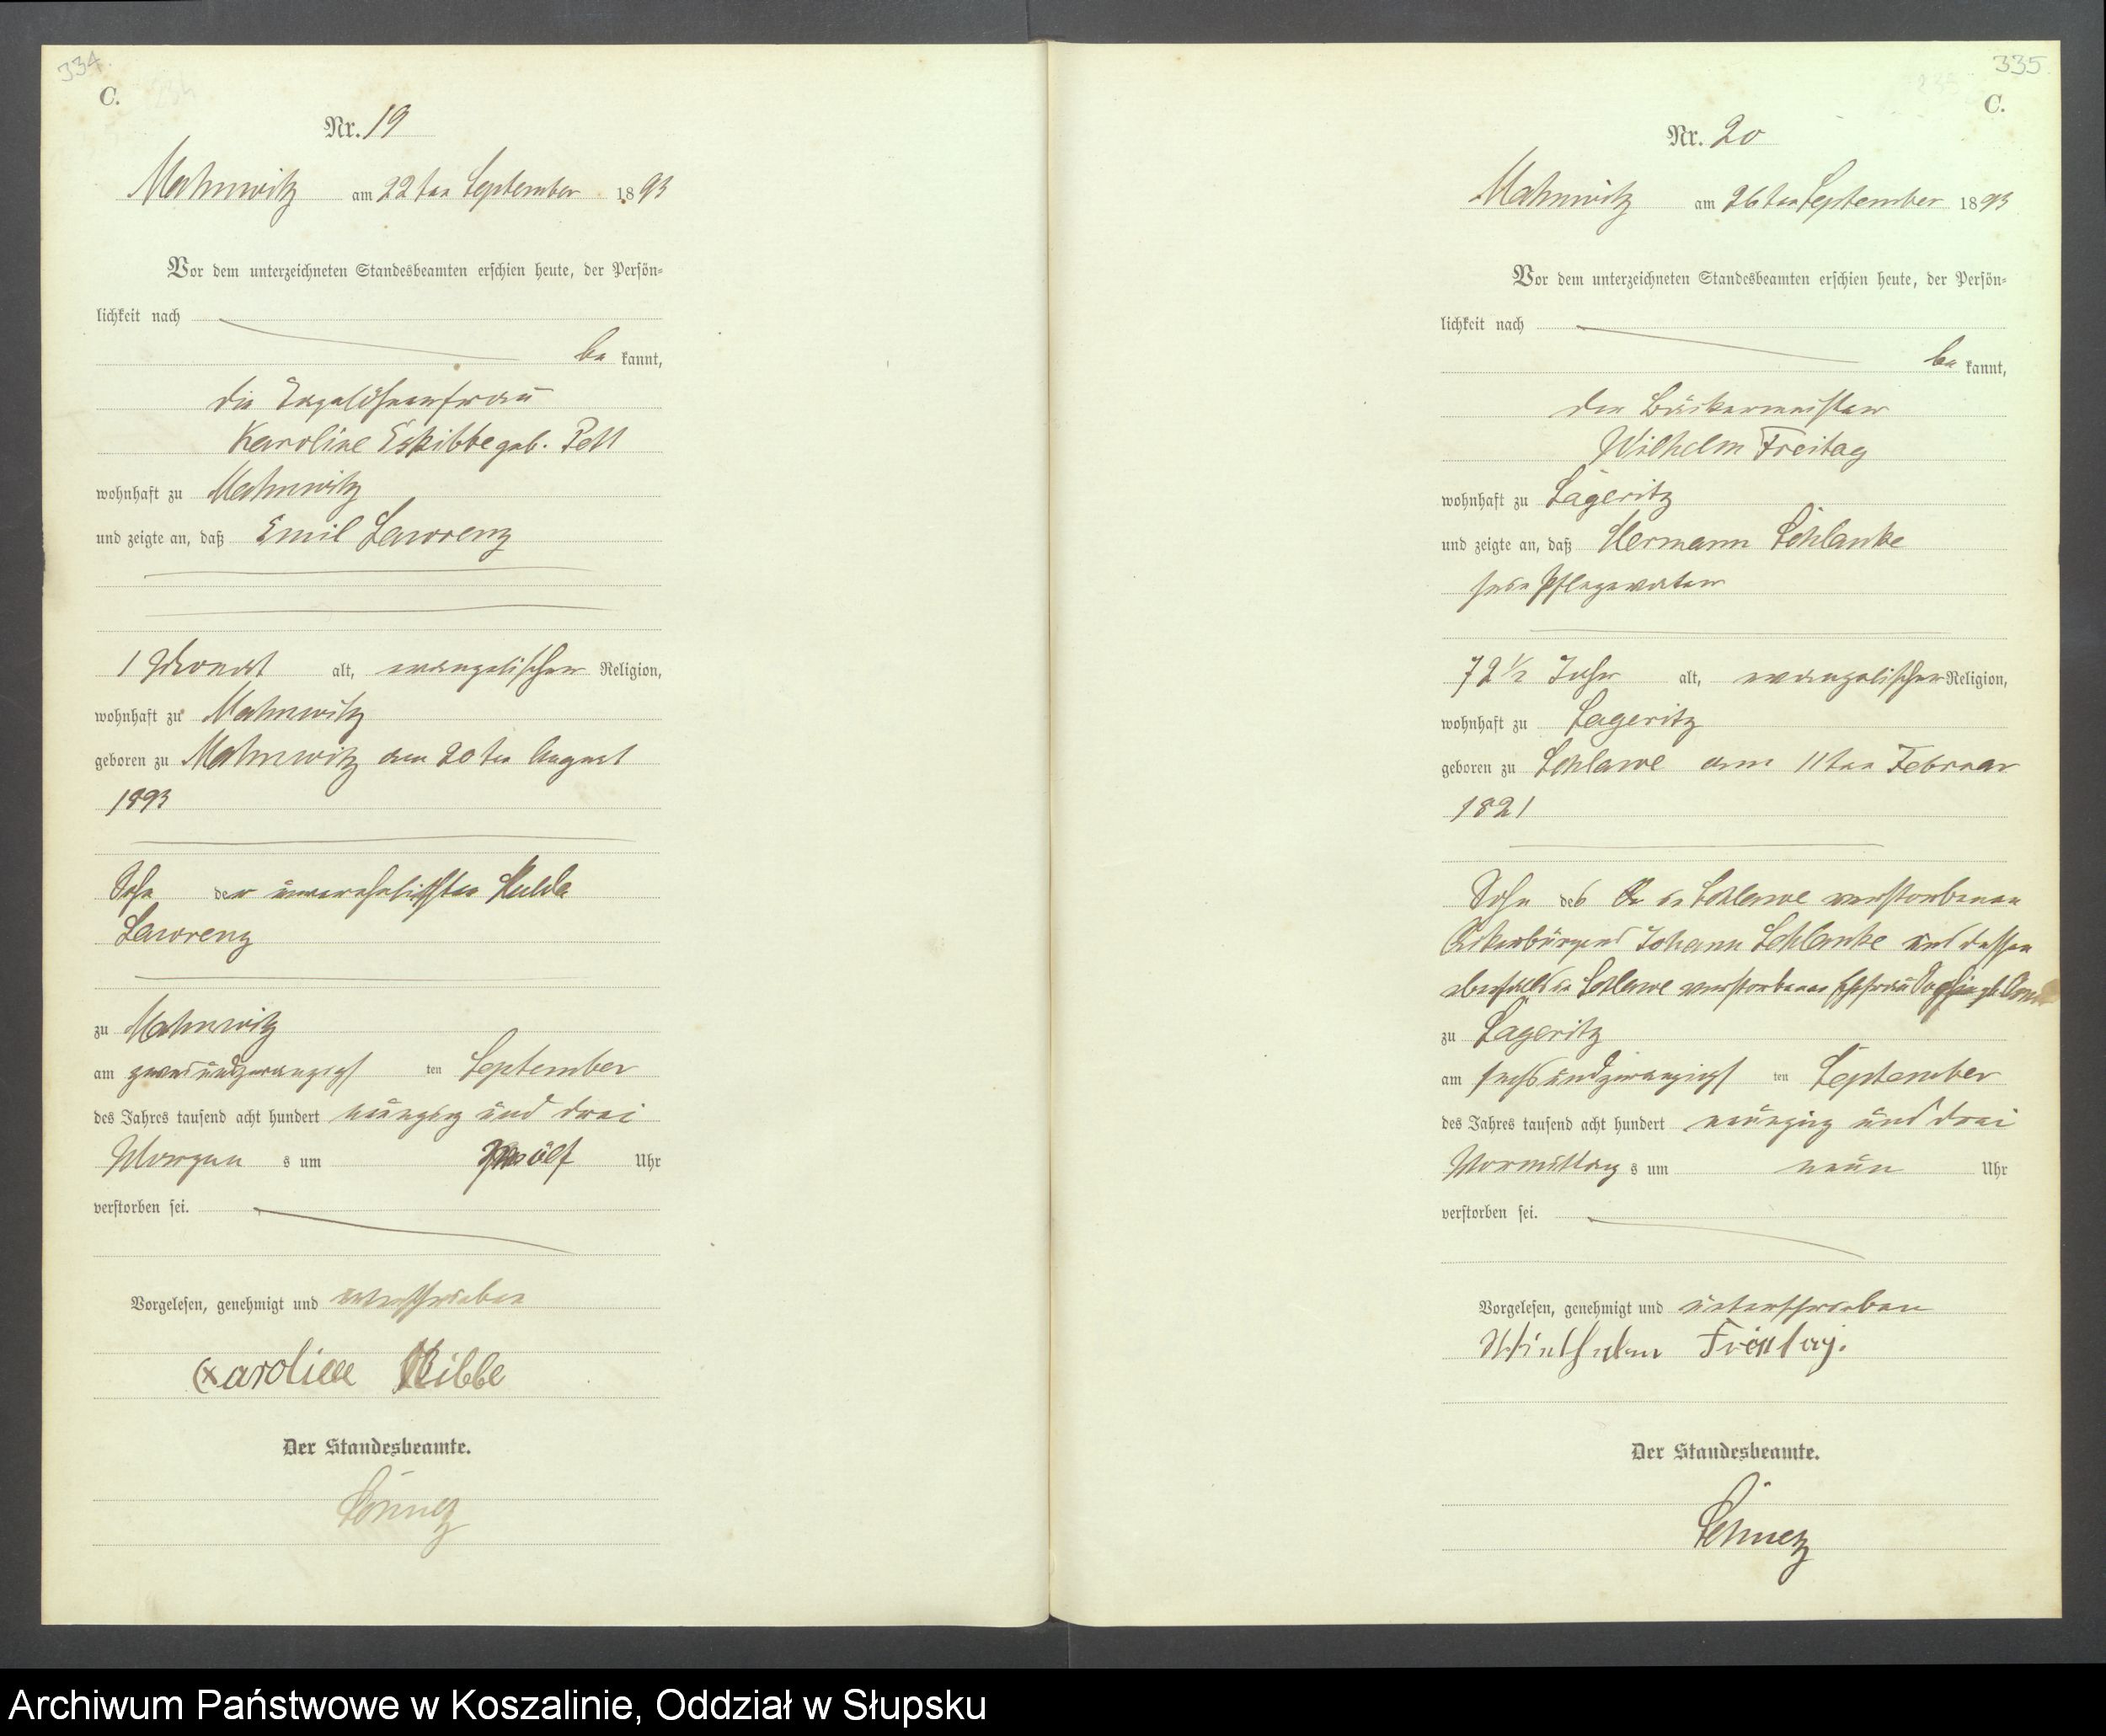 334
C.
Nr. 19
Mahnwitz am 22ten September 1893
Vor dem unterzeichneten Standesbeamten erschien heute, der Persön-
lichkeit nach
be kannt,
die
Karoline Eskibbe geb. Pett
wohnhaft zu Mahnwitz
und zeigte an, daß Emil Lawrenz
1 Monat alt, evangelischer Religion,
wohnhaft zu Mahnwitz
geboren zu Mahnwitz am 20ten August
1893
Sohn der unverehelichten Hulda
Lawrenz
zu Mahnwitz
am zweiundzwanzigst ten September
des Jahres tausend acht hundert neunzig und drei
Morgen s um zwölf Uhr
verstorben sei.
Vorgelesen, genehmigt und unterschrieben
Karoline Skibbe
Der Standesbeamte.
335
C.
Nr. 20
Mahnwitz am 26ten September 1893
Vor dem unterzeichneten Standesbeamten erschien heute, der Persön-
lichkeit nach
be kannt,
der Bäckermeister
Wilhelm Freitag
wohnhaft zu Sageritz
und zeigte an, daß Hermann Schlanke
sein Pflegevater
72 1/2 Jahr alt, evangelischer Religion,
wohnhaft zu Sageritz
geboren zu Schlawe am 11ten Februar
1821
Sohn des in Schlawe verstorbenen
Ackerbürgers Johann Schlanke und dessen
ebenfalls in Schlawe verstorbenen Ehefrau
zu Sageritz
am sechsundzwanzigst ten September
des Jahres tausend acht hundert neunzig und drei
Vormittag s um neun Uhr
verstorben sei.
Vorgelesen, genehmigt und unterschrieben
Wilhelm Freitag.
Der Standesbeamte.
Archiwum Państwowe w Koszalinie, Oddział w Słupsku